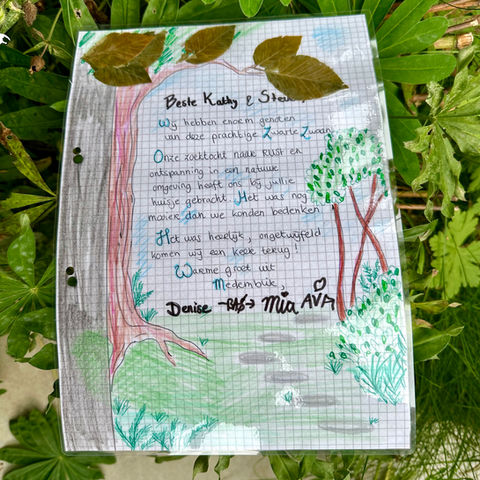 Beste Kathy & Steve,
Wij hebben enorm genoten
van deze prachtige Zwarte Zwaan
Onze zoektocht naar RUST en
ontspanning in een natuur
omgeving heeft ons bij jullie
huisje gebracht. Het was nog
mooier dan we konden bedenken
Het was heerlijk, ongetwijfeld
komen wij een keer terug!
Warme groet uit
Medemblik,
Denise Mia AVA